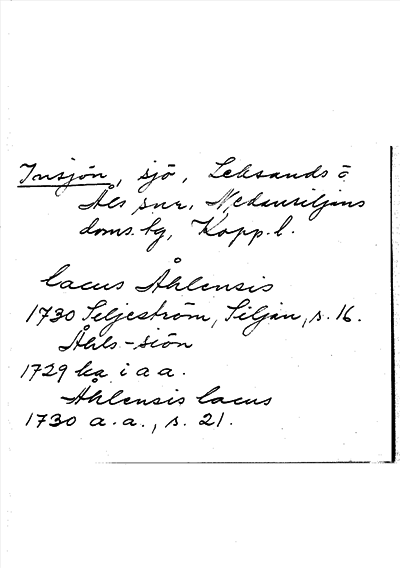 Insjön, sjö, Leksands o
Åls snr, Nedansiljans
doms.tg, Kopp.l.
lacus Åhlensis
1730 Seljeström, Siljan, s. 16.
Åhls-siön
1729 ka i a a.
Åhlensis lacus
1730 a.a., s. 21.